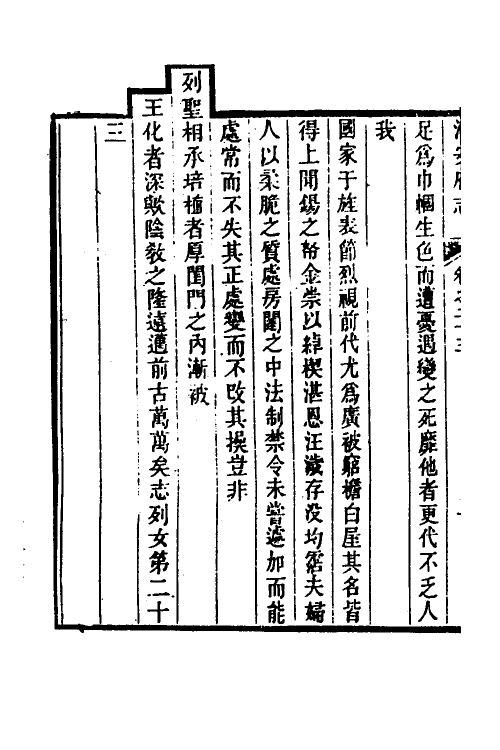 足爲巾幗生色而遭憂遇變之死靡他者更代不乏人
我
國家于旌表節烈視前代尤爲廣被窮檐白屋其名皆
得上聞錫之帑金崇以綽楔湛恩汪濊存没均霑夫婦
人以柔脆之質處房闥之中法制禁令未嘗遽加而能
處常而不失其正處變而不改其操豈非
列聖相承培植者厚閨門之內漸被
王化者深歟陰敎之隆遠邁前古萬萬矣志列女第二十
三